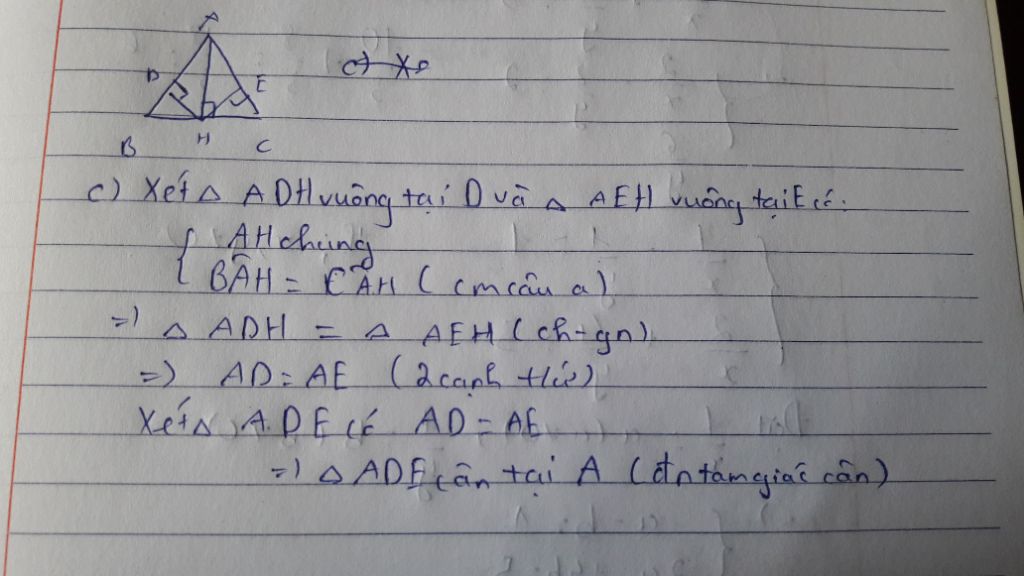 A
D
E
B
H
C
c) Xé
c) Xét △ ADH vuông tại D và △ AEH vuông tại E có:
AH chung
BÂH = CÂH (cm câu a)
=) △ ADH = △ AEH (ch-gn)
=) AD = AE (2 cạnh t/ứ)
Xét △ ADE có AD = AE
=) △ ADE cân tại A (đn tam giác cân)